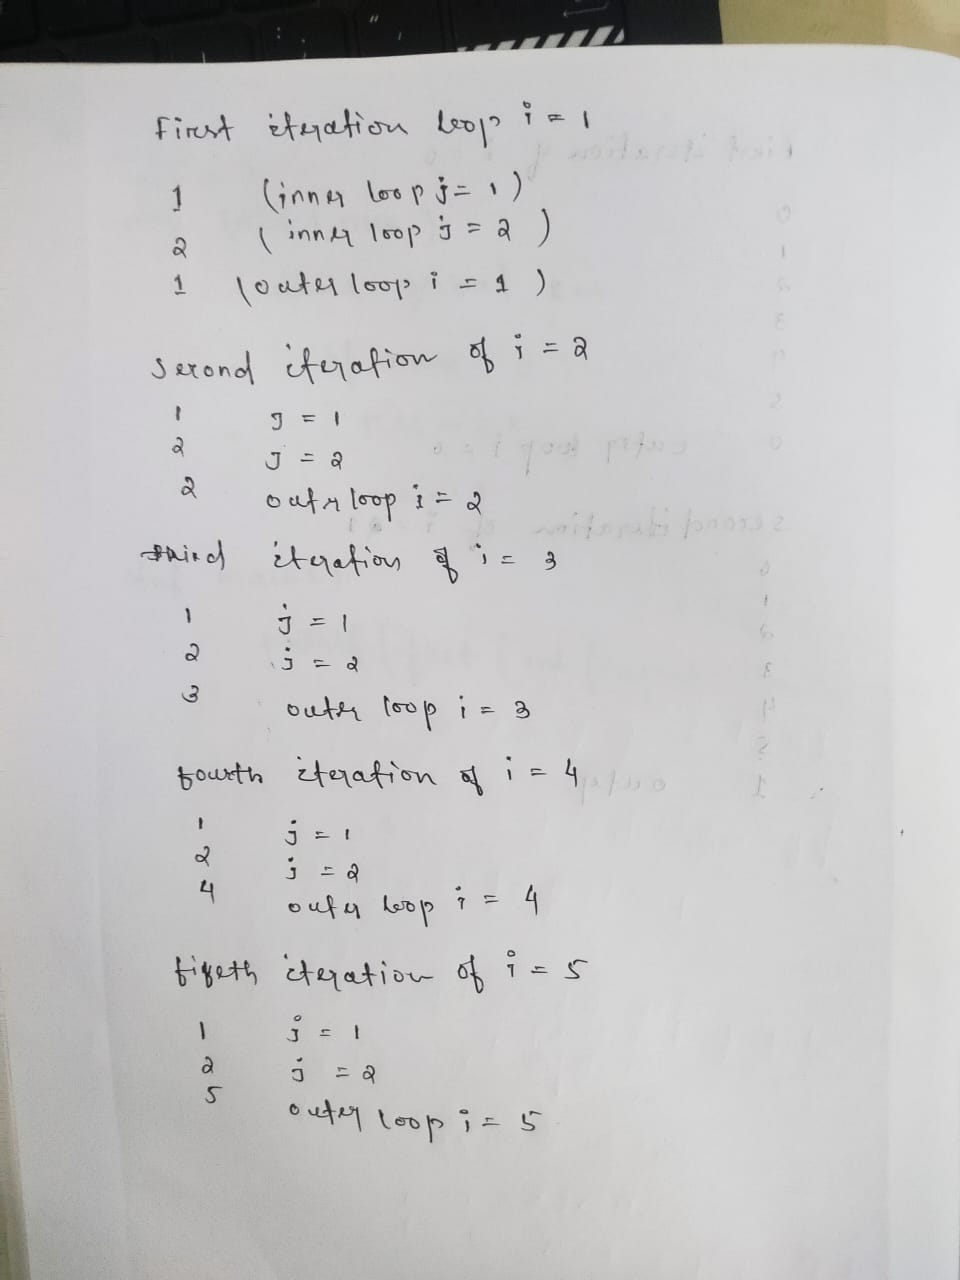 First iteration loop i = 1
1 (inner loop j = 1)
2 (inner loop j = 2)
1 (outer loop i = 1)
second iteration of i = 2
1 J = 1
2 J = 2
2 outer loop i = 2
third iteration of i = 3
1 j = 1
2 j = 2
3 outer loop i = 3
fourth iteration of i = 4
1 j = 1
2 j = 2
4 outer loop i = 4
fifeth iteration of i = 5
1 j = 1
2 j = 2
5 outer loop i = 5